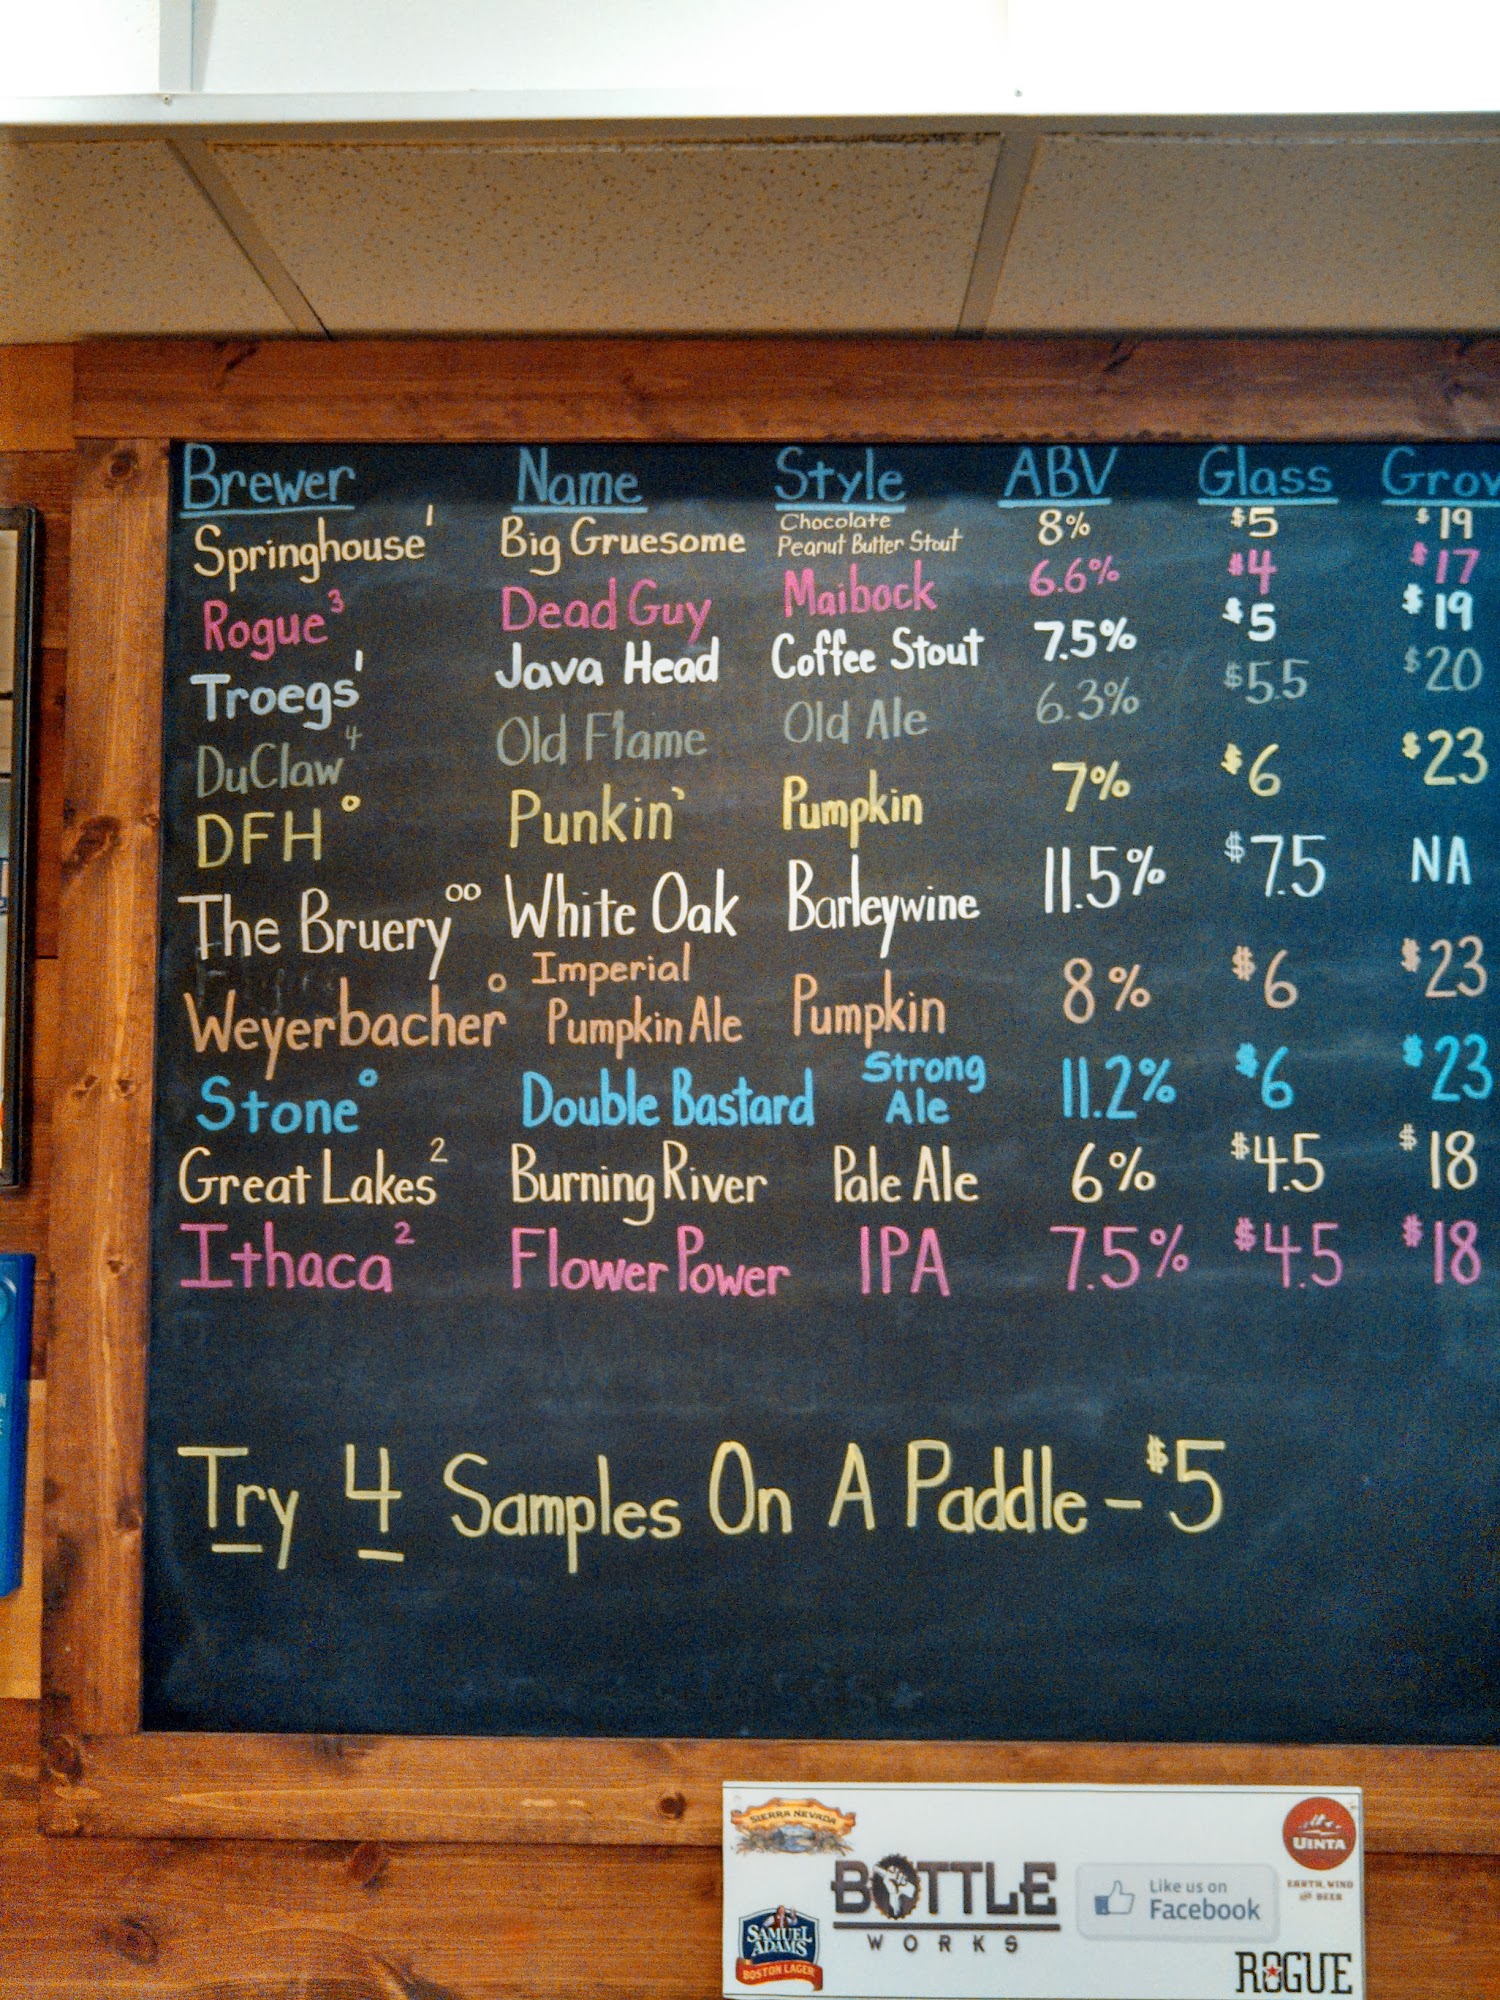 Brewer Name Style ABV Glass Grow
Springhouse¹ Big Gruesome Chocolate Peanut Butter Stout 8% $5 $19
Rogue³ Dead Guy Maibock 6.6% $4 $17
Troegs¹ Java Head Coffee Stout 7.5% $5 $19
DuClaw⁴ Old Flame Old Ale 6.3% $5.5 $20
DFH° Punkin' Pumpkin 7% $6 $23
The Bruery°° White Oak Barleywine 11.5% $7.5 NA
Weyerbacher° Imperial Pumpkin Ale Pumpkin 8% $6 $23
Stone° Double Bastard Strong Ale 11.2% $6 $23
Great Lakes² Burning River Pale Ale 6% $4.5 $18
Ithaca² Flower Power IPA 7.5% $4.5 $18
Try 4 Samples On A Paddle – $5
SIERRA NEVADA
UINTA
EARTH, WIND
AND BEER
BOTTLE
WORKS
Like us on
Facebook
SAMUEL
ADAMS
BOSTON LAGER
ROGUE